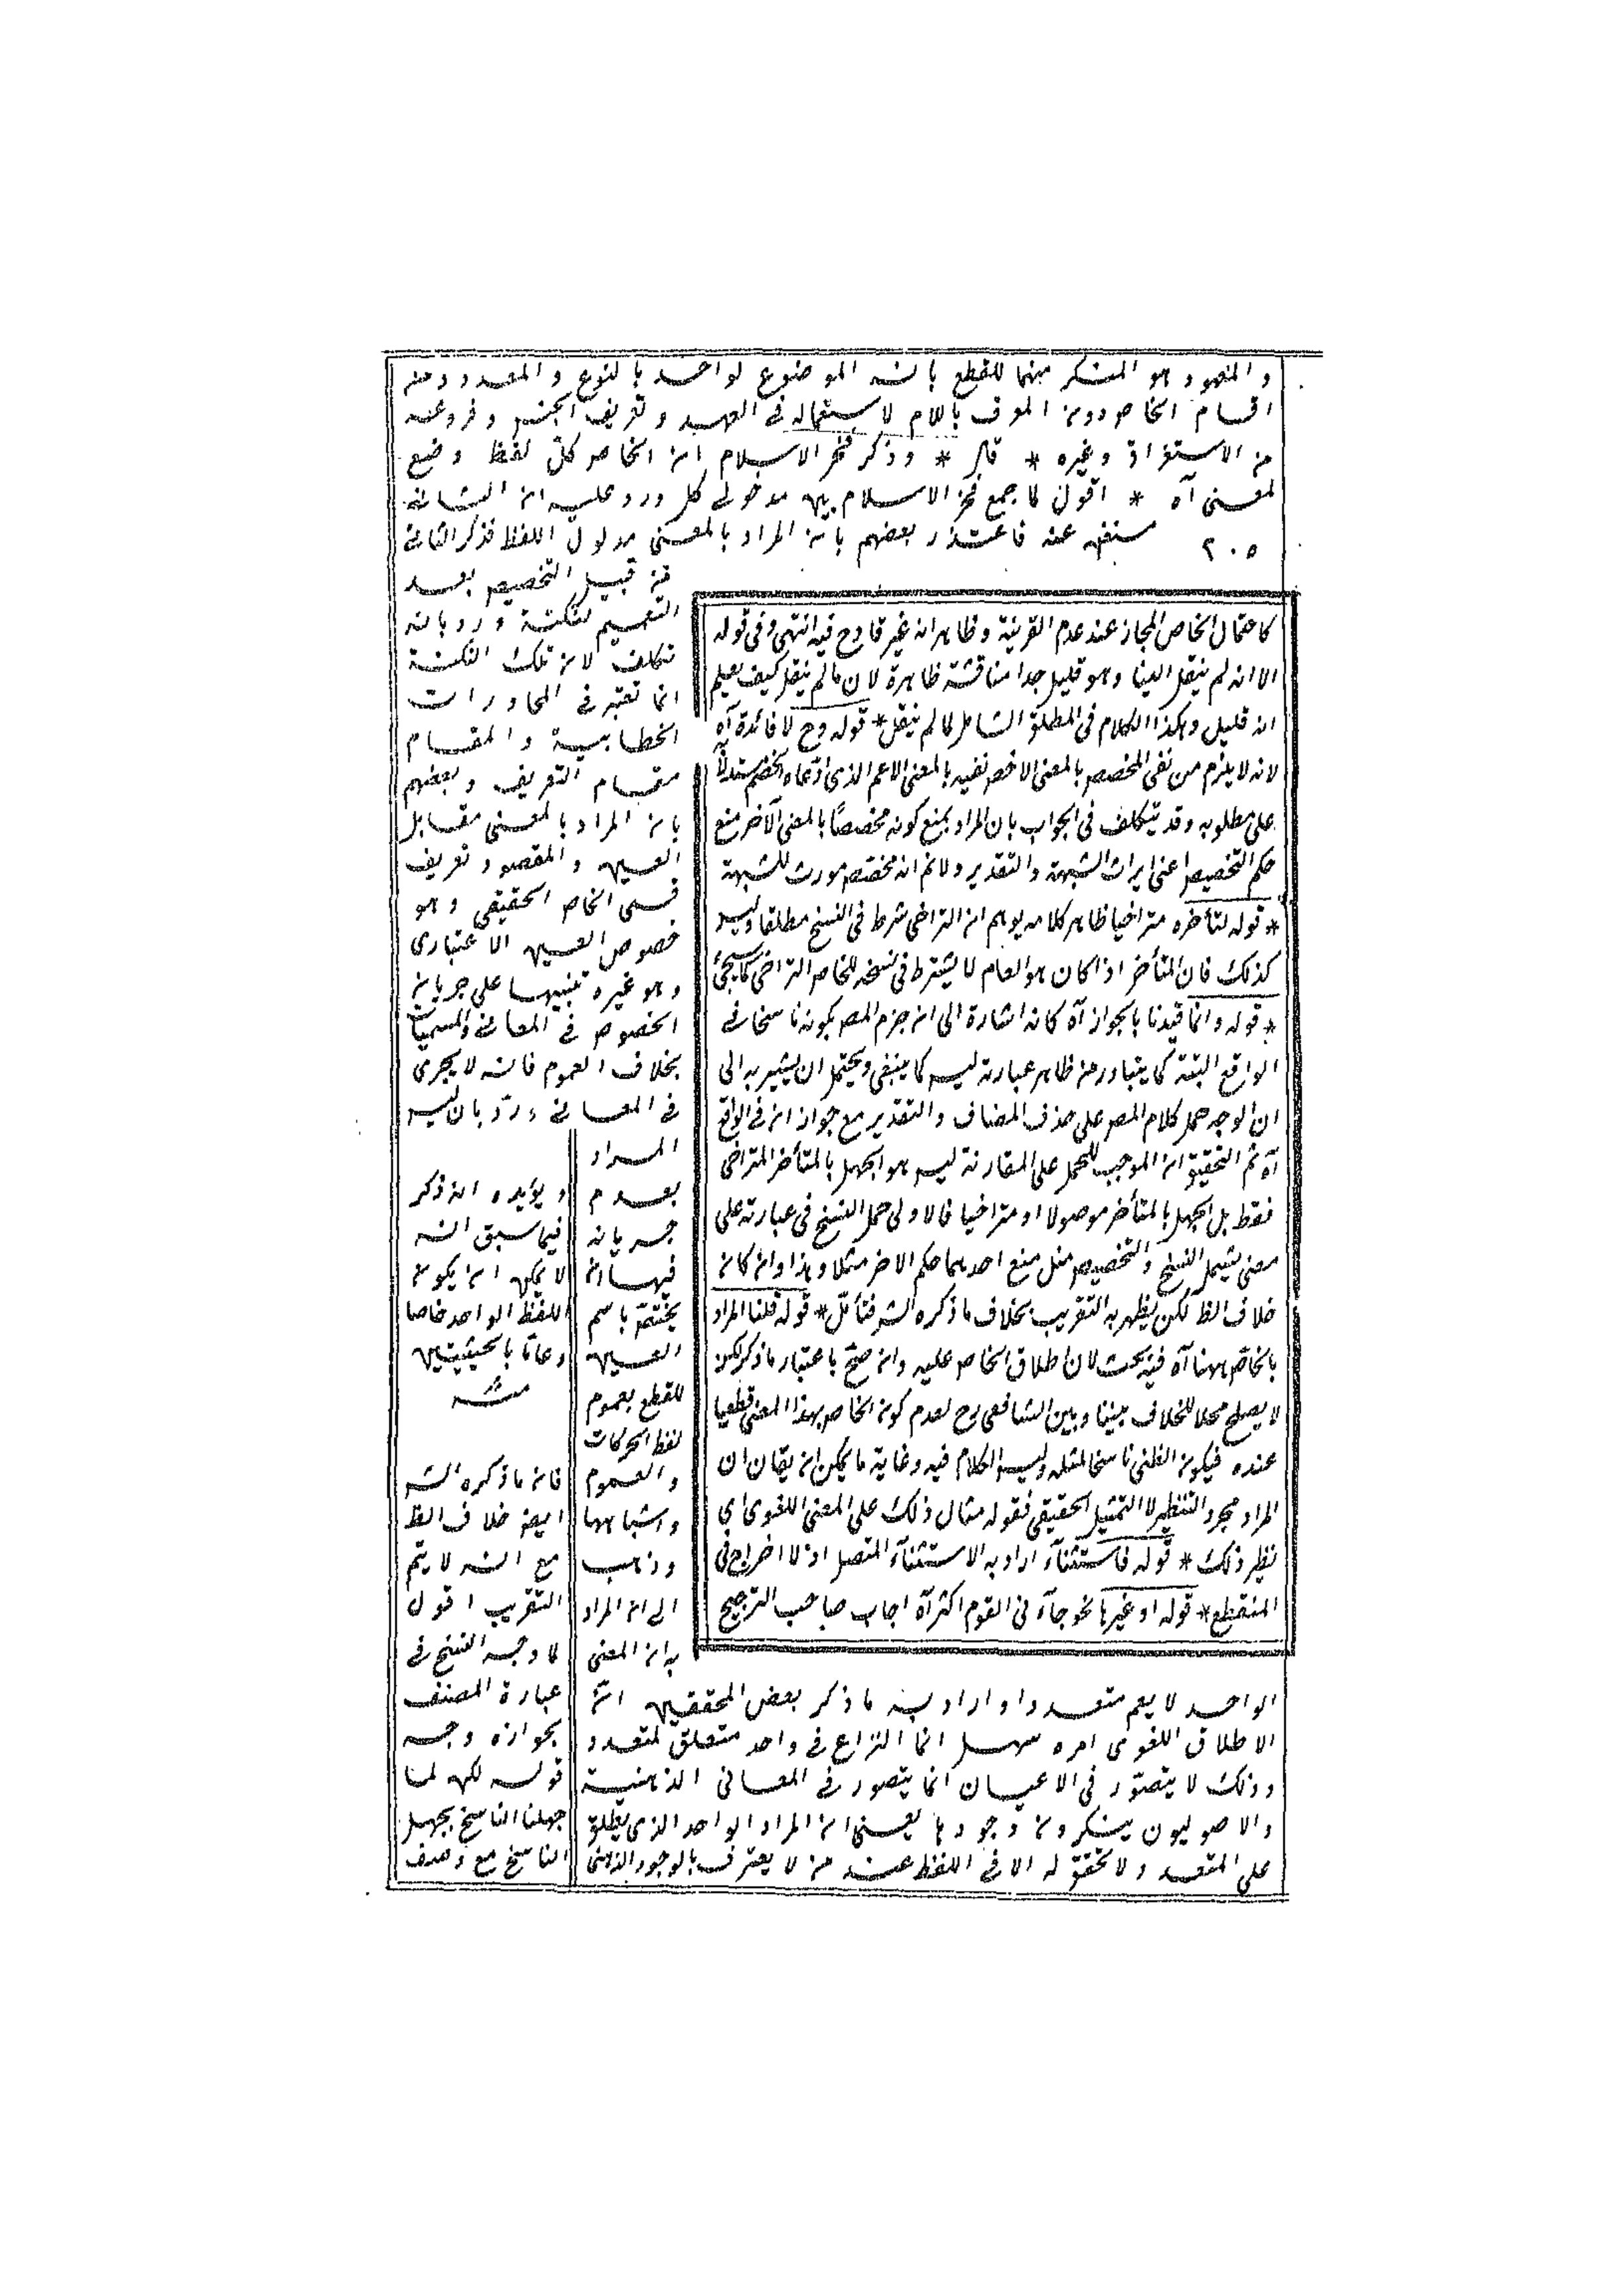 والمقصود هو المنكر منهما للقطع بانه الموضوع لواحد بالنوع والمعدود منه
اقسام الخاص دون المعرف باللام لاستعماله في العهد وتعريف الجنس وفروعه
من الاستغراق وغيره * قال * وذكر فخر الاسلام ان الخاص كل لفظ وضع
لمعنى آه * اقول لما جمع فخر الاسلام بين مدخولي كل ورد عليه ان الثاني
٢٠٥ مستغن عنه فاعتذر بعضهم بان المراد بالمعنى مدلول اللفظ فذكر الثاني
من قبيل التخصيص بعد
التعميم لنكتة ورد بانه
تكلف لان تلك النكتة
انما تعتبر في المحاورات
الخطابية والمقام
مقام التعريف وبعضهم
بان المراد بالمعنى مقابل
العين والمقصود تعريف
قسمى الخاص الحقيقي وهو
خصوص العين الاعتبارى
وهو غيره تنبيها على جريان
الخصوص في المعاني والمسميات
بخلاف العموم فانه لا يجرى
في المعاني ورد بان ليس
المراد
بعدم
جريانه
فيها انه
يختص باسم
العين
للقطع بعموم
لفظ الحركات
والعموم
واشباهها
وذهب
الى ان المراد
به ان المعنى
الواحد لا يعم متعددا واراد به ما ذكر بعض المحققين ان
الاطلاق اللغوى امره سهل انما النزاع في واحد متعلق لمتعدد
وذلك لا يتصور في الاعيان انما يتصور في المعاني الذهنية
والاصوليون ينكرون وجودها يعنى ان المراد الواحد الذى يطلق
على المتعدد ولا تحقق له الا في اللفظ عند من لا يعترف بالوجود الذهنى
كاحتمال الخاص المجاز عند عدم القرينة وظاهر انه غير قادح فيه انتهى وفي قوله
الا انه لم ينقل الينا وهو قليل جدا مناقشة ظاهرة لان ما لم ينقل كيف يعلم
انه قليل وهكذا الكلام في المطلق الشامل لما لم ينقل * قوله وح لا فائدة آه
لانه لا يلزم من نفى المخصص بالمعنى الاخص نفيه بالمعنى الاعم الذى ادعاه الخصم مستدلا
على مطلوبه وقد يتكلف في الجواب بان المراد بمنع كونه مخصصا بالمعنى الآخر منع
حكم التخصيص اعنى ايراث الشبهة والتقدير ولا نم انه مخصص مورث للشبهة
* قوله لتأخره متراخيا ظاهر كلامه يوهم ان التراخى شرط في النسخ مطلقا وليس
كذلك فان المتأخر اذا كان هو العام لا يشترط في نسخه للخاص التراخى كما سيجئ
* قوله وانما قيدنا بالجواز آه كانه اشارة الى ان جزم المص بكونه ناسخا في
الواقع البتة كما يتبادر من ظاهر عبارته ليس كما ينبغى ويحتمل ان يشير به الى
ان الوجه حمل كلام المص على حذف المضاف والتقدير مع جواز ان في الواقع
آه ثم التحقيق ان الموجب للحمل على المقارنة ليس هو الجهل بالمتأخر المتراخى
فقط بل الجهل بالمتأخر موصولا او متراخيا فالاولى حمل النسخ في عبارته على
معنى يشمل النسخ والتخصيص مثل منع احدهما حكم الآخر مثلا وهذا وان كان
خلاف الظ لكن يظهر به التقريب بخلاف ما ذكره الشر فتأمل * قوله قلنا المراد
بالخاص ههنا آه فيه بحث لان اطلاق الخاص عليه وان صح باعتبار ما ذكر لكن
لا يصلح محلا للخلاف بيننا وبين الشافعى رح لعدم كون الخاص بهذا المعنى قطعيا
عنده فيكون الظنى ناسخا لمثله وليس الكلام فيه وغاية ما يمكن ان يقال ان
المراد مجرد التنظير لا التمثيل الحقيقي فقوله مثال ذلك على المعنى اللغوى اى
نظير ذلك * قوله فاستثناء اراد به الاستثناء المتصل اذ لا اخراج في
المنقطع * قوله او غيرها نحو جاء نى القوم اكثر آه اجاب صاحب الترجيح
ويؤيده انه ذكر
فيما سبق انه
لا يمكن ان يكون
اللفظ الواحد خاصا
وعاما بالحيثيتين
منه
فان ما ذكره الشر
ايضا خلاف الظ
مع انه لا يتم
التقريب اقول
لما وجه النسخ في
عبارة المصنف
بجوازه وجه
قوله لكن لما
جهلنا الناسخ بجهل
الناسخ مع وصف